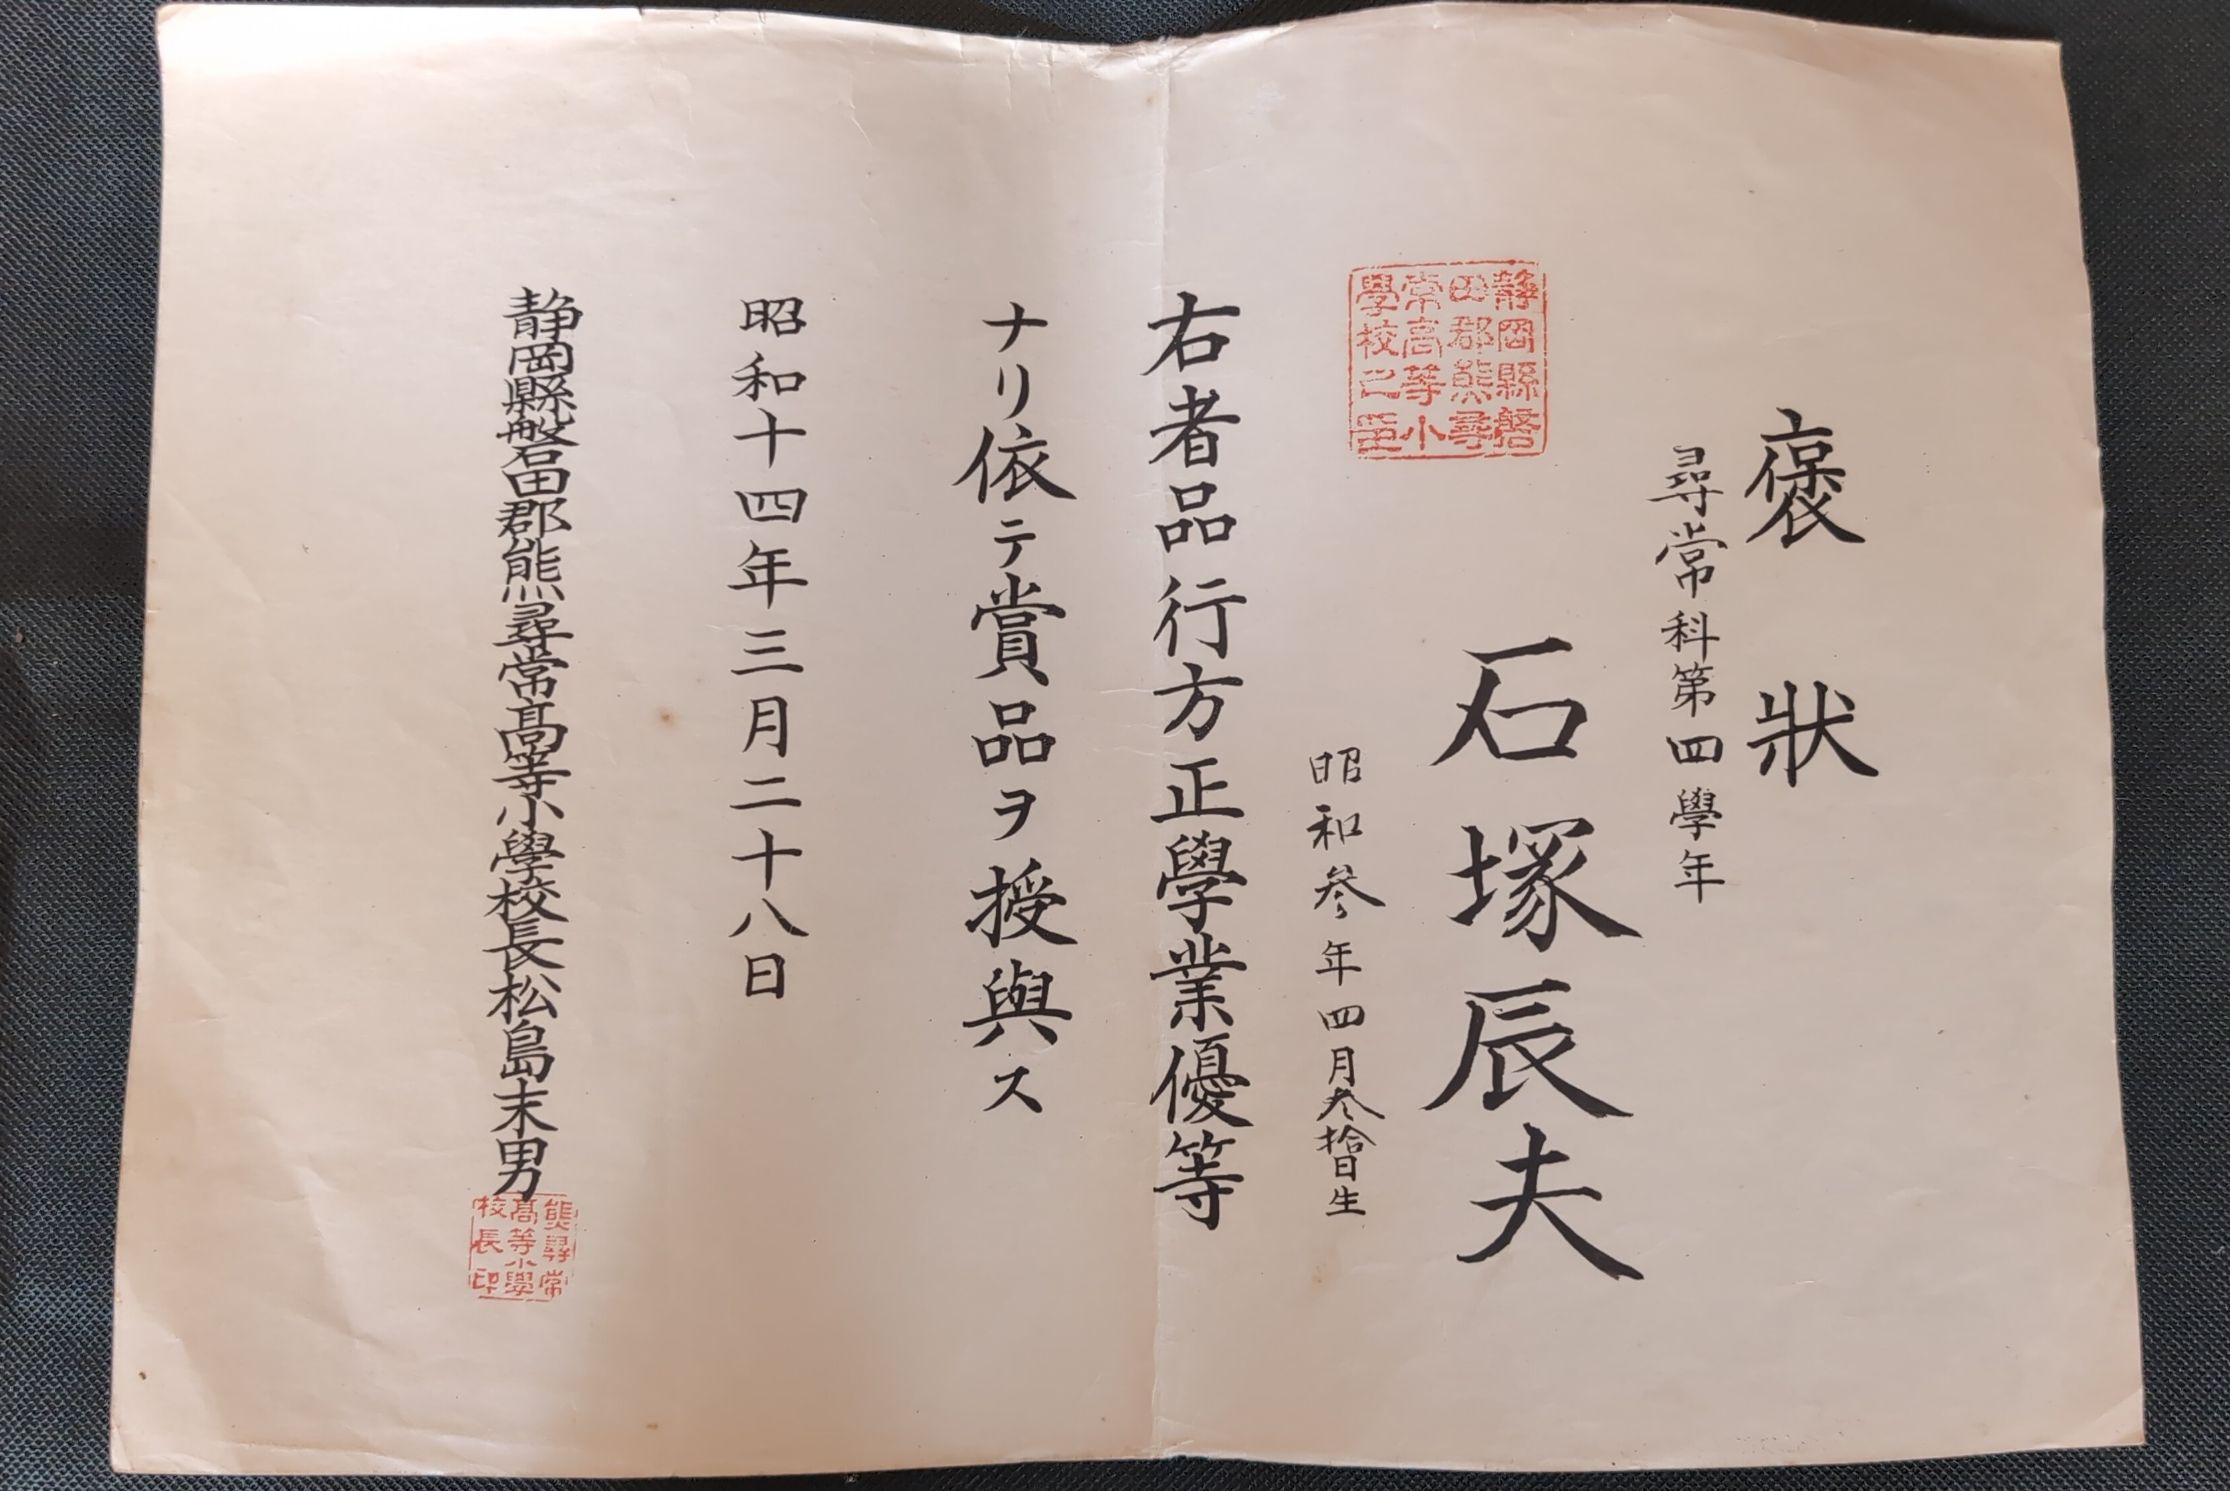 褒狀
尋常科第四學年
石塚辰夫
昭和叄年四月叄拾日生
靜岡縣磐
田郡熊尋
常高等小
學校之印
右者品行方正學業優等
ナリ依テ賞品ヲ授與ス
昭和十四年三月二十八日
静岡縣磐田郡熊尋常高等小學校長松島末男
熊尋常
高等小學
校長印